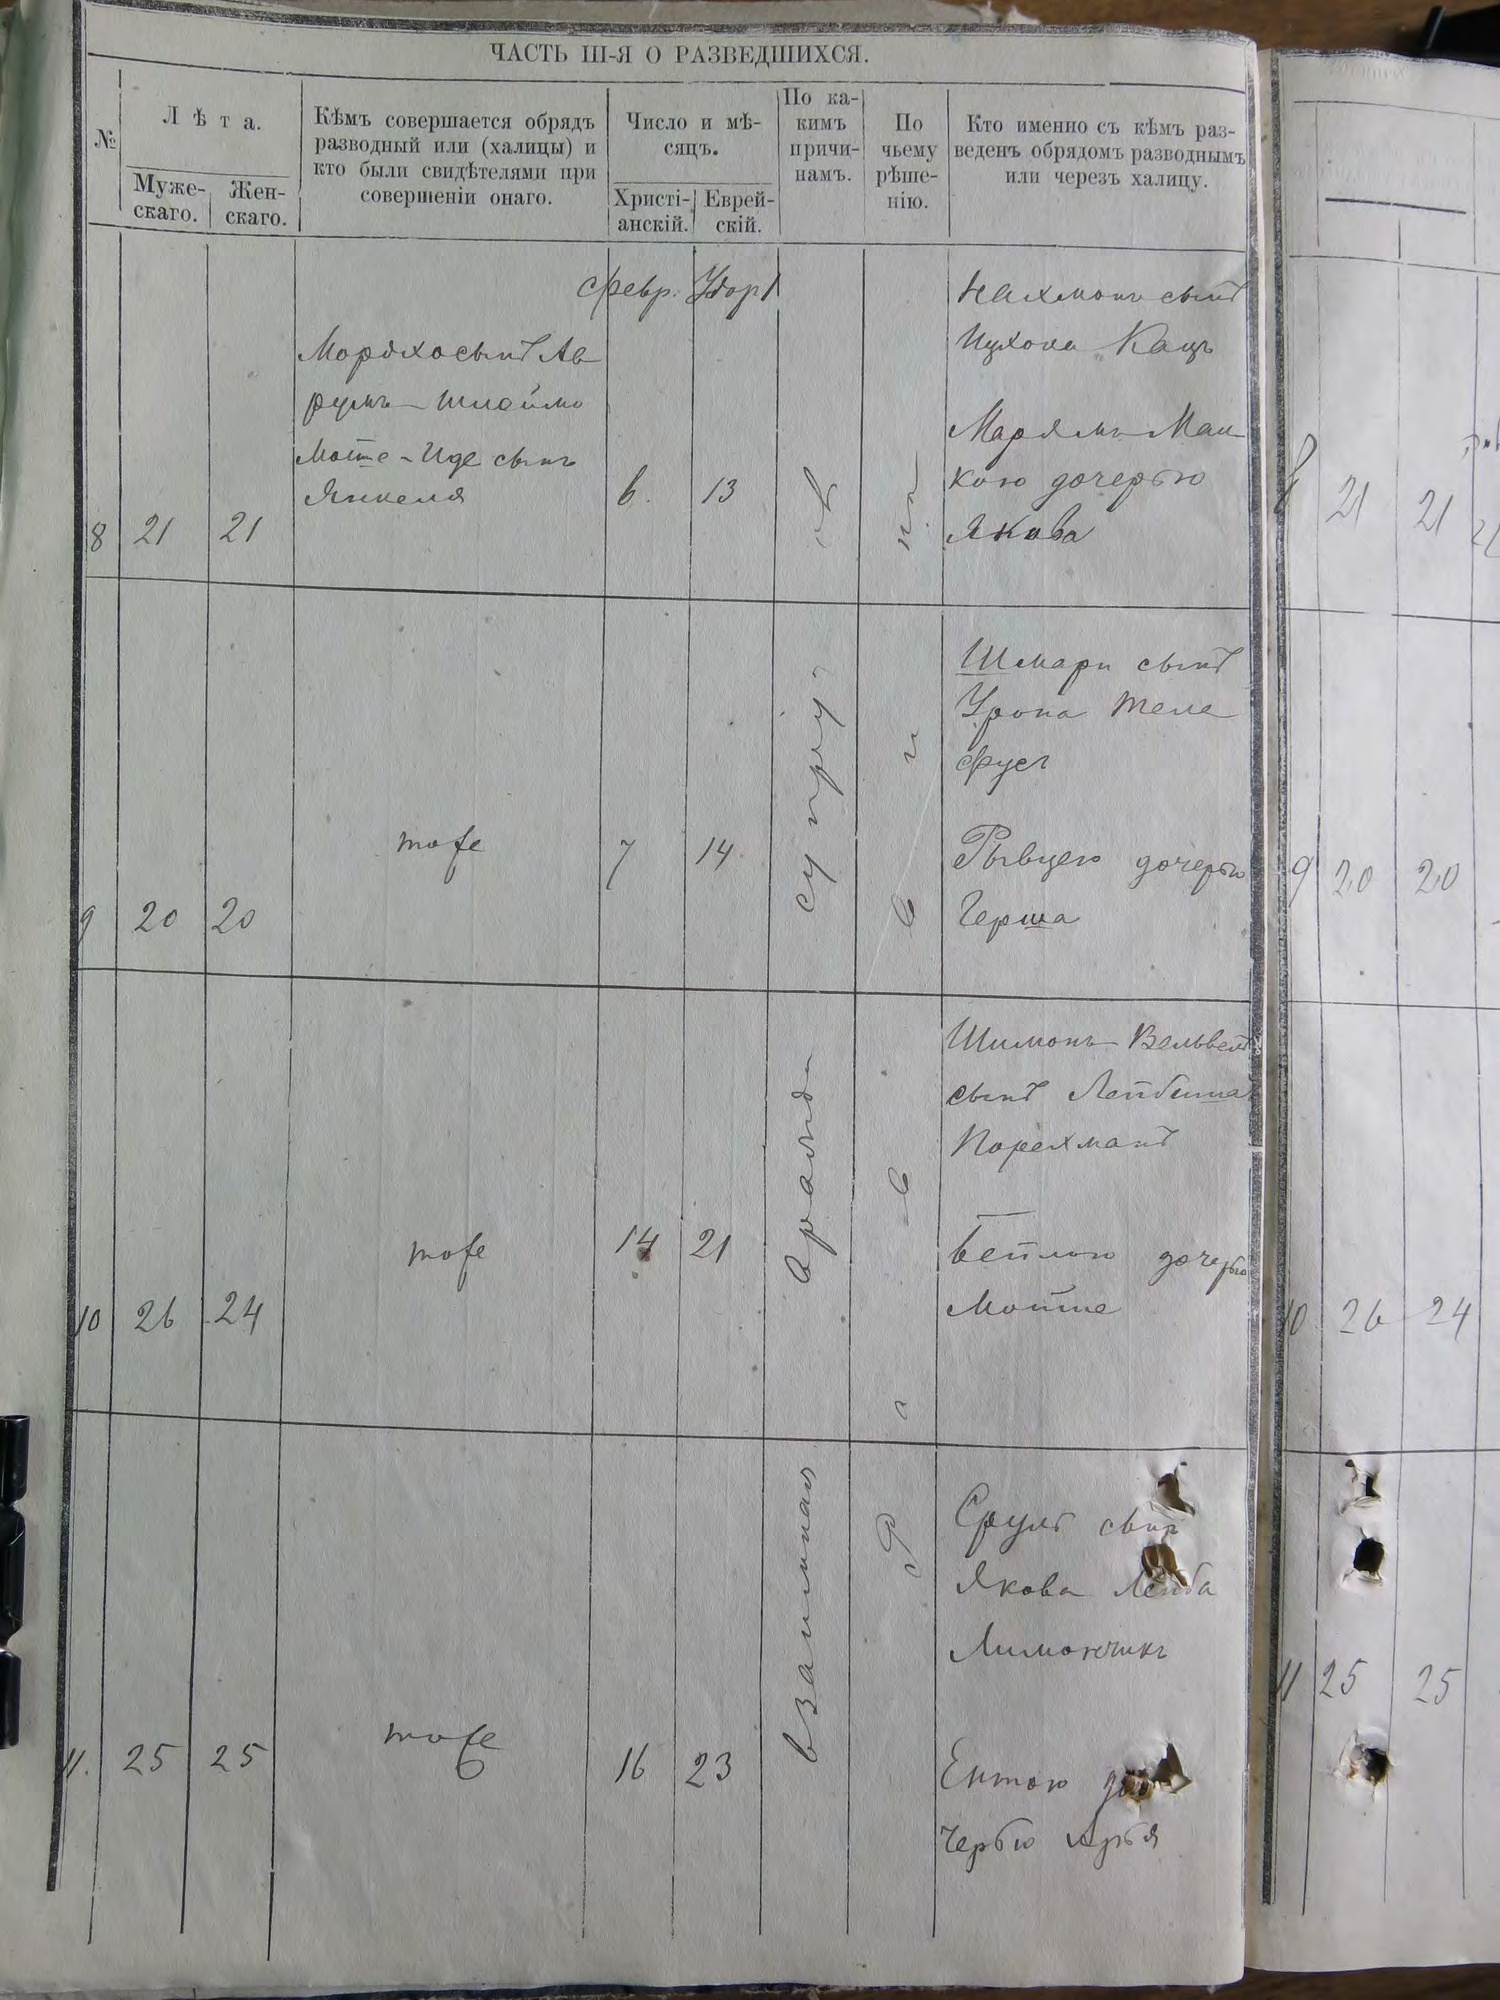 ЧАСТЬ III-Я О РАЗВЕДШИХСЯ.
№
Лѣта.
Муже-
скаго.
Жен-
скаго.
Кѣмъ совершается обрядъ
разводный или (халицы) и
кто были свидѣтелями при
совершеніи онаго.
Число и мѣ-
сяцъ.
Христі-
анскій.
Еврей-
скій.
По ка-
кимъ
причи-
намъ.
По
чьему
рѣше-
нію.
Кто именно съ кѣмъ раз-
веденъ обрядомъ разводнымъ
или черезъ халицу.
Февр.
8 21 21
Мордхо сынъ Ав
румъ-Шлеймо
сынъ
Янкеля
6. 13
Нахманъ сынъ
Кацъ
Марямъ-
кою дочерью
Якова
9 20 20
тоже
7 14
Шмари сынъ
Теле
фусъ
Рывцею дочерью
Герша
10 26 24
тоже
14 21
Шимонъ-Вельвель
сынъ Лейбиша
Бейлою дочерью
Мойше
11. 25 25
тоже
16 23
взаимная вражда супруговъ
Сруль сынъ
Якова Лейба
Лимончикъ
Ентою до
черью
8 21 21
9 20 20
10 26 24
11 25 25